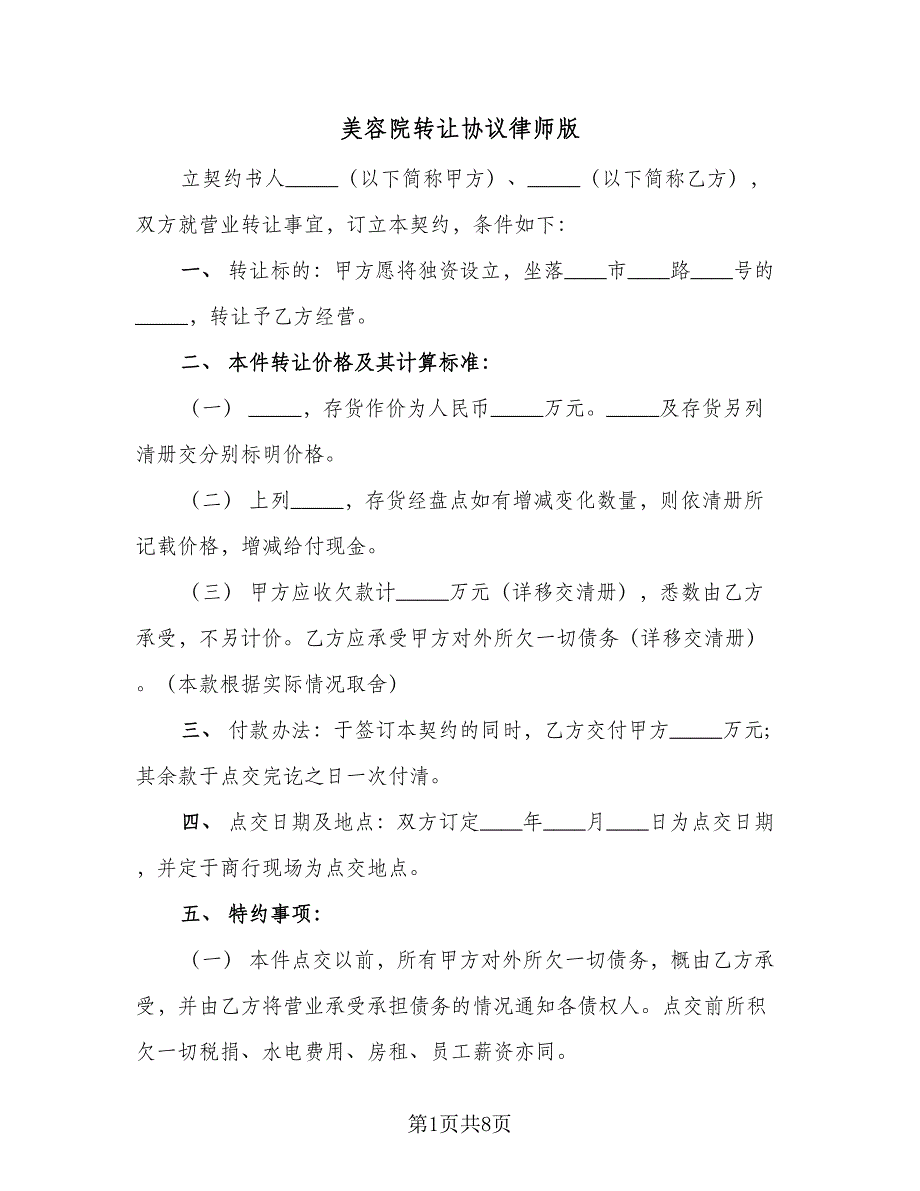 美容院转让协议律师版
立契约书人_____（以下简称甲方）、_____（以下简称乙方），
双方就营业转让事宜，订立本契约，条件如下：
一、 转让标的：甲方愿将独资设立，坐落____市____路____号的
_____，转让予乙方经营。
二、 本件转让价格及其计算标准：
（一） _____，存货作价为人民币_____万元。_____及存货另列
清册交分别标明价格。
（二） 上列_____，存货经盘点如有增减变化数量，则依清册所
记载价格，增减给付现金。
（三） 甲方应收欠款计_____万元（详移交清册），悉数由乙方
承受，不另计价。乙方应承受甲方对外所欠一切债务（详移交清册）
。（本款根据实际情况取舍）
三、 付款办法：于签订本契约的同时，乙方交付甲方_____万元;
其余款于点交完讫之日一次付清。
四、 点交日期及地点：双方订定____年____月____日为点交日期
，并定于商行现场为点交地点。
五、 特约事项：
（一） 本件点交以前，所有甲方对外所欠一切债务，概由乙方承
受，并由乙方将营业承受承担债务的情况通知各债权人。点交前所积
欠一切税捐、水电费用、房租、员工薪资亦同。
第1页共8页